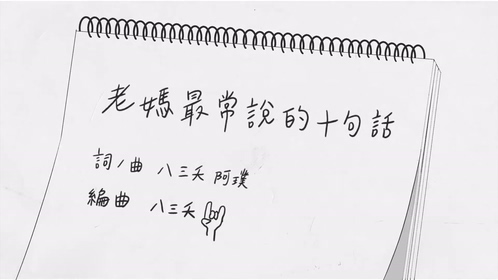 老媽最常說的十句話
詞/曲 八三夭 阿璞
編曲 八三夭